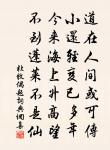 道在人間或可傳
小還輕變已多年
今來海上升高望
不到蓬萊不是仙
杜牧偶題詞典網集